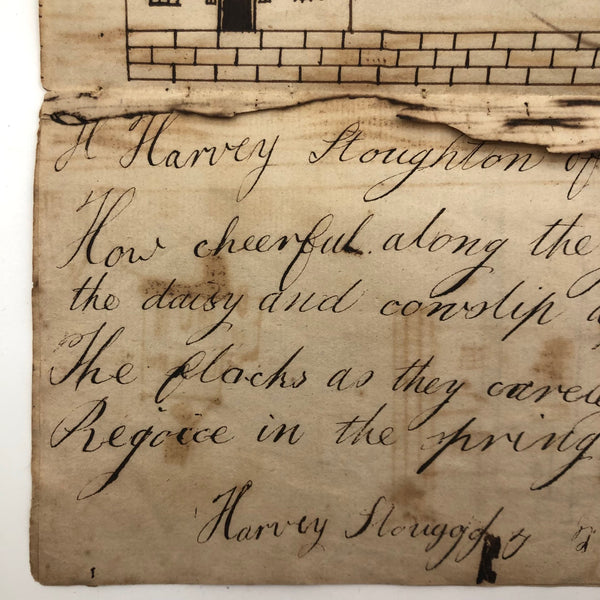 H Harvey Stoughton of
How cheerful along the
the daisy and cowslip
The flocks as they carele
Rejoice in the spring
Harvey